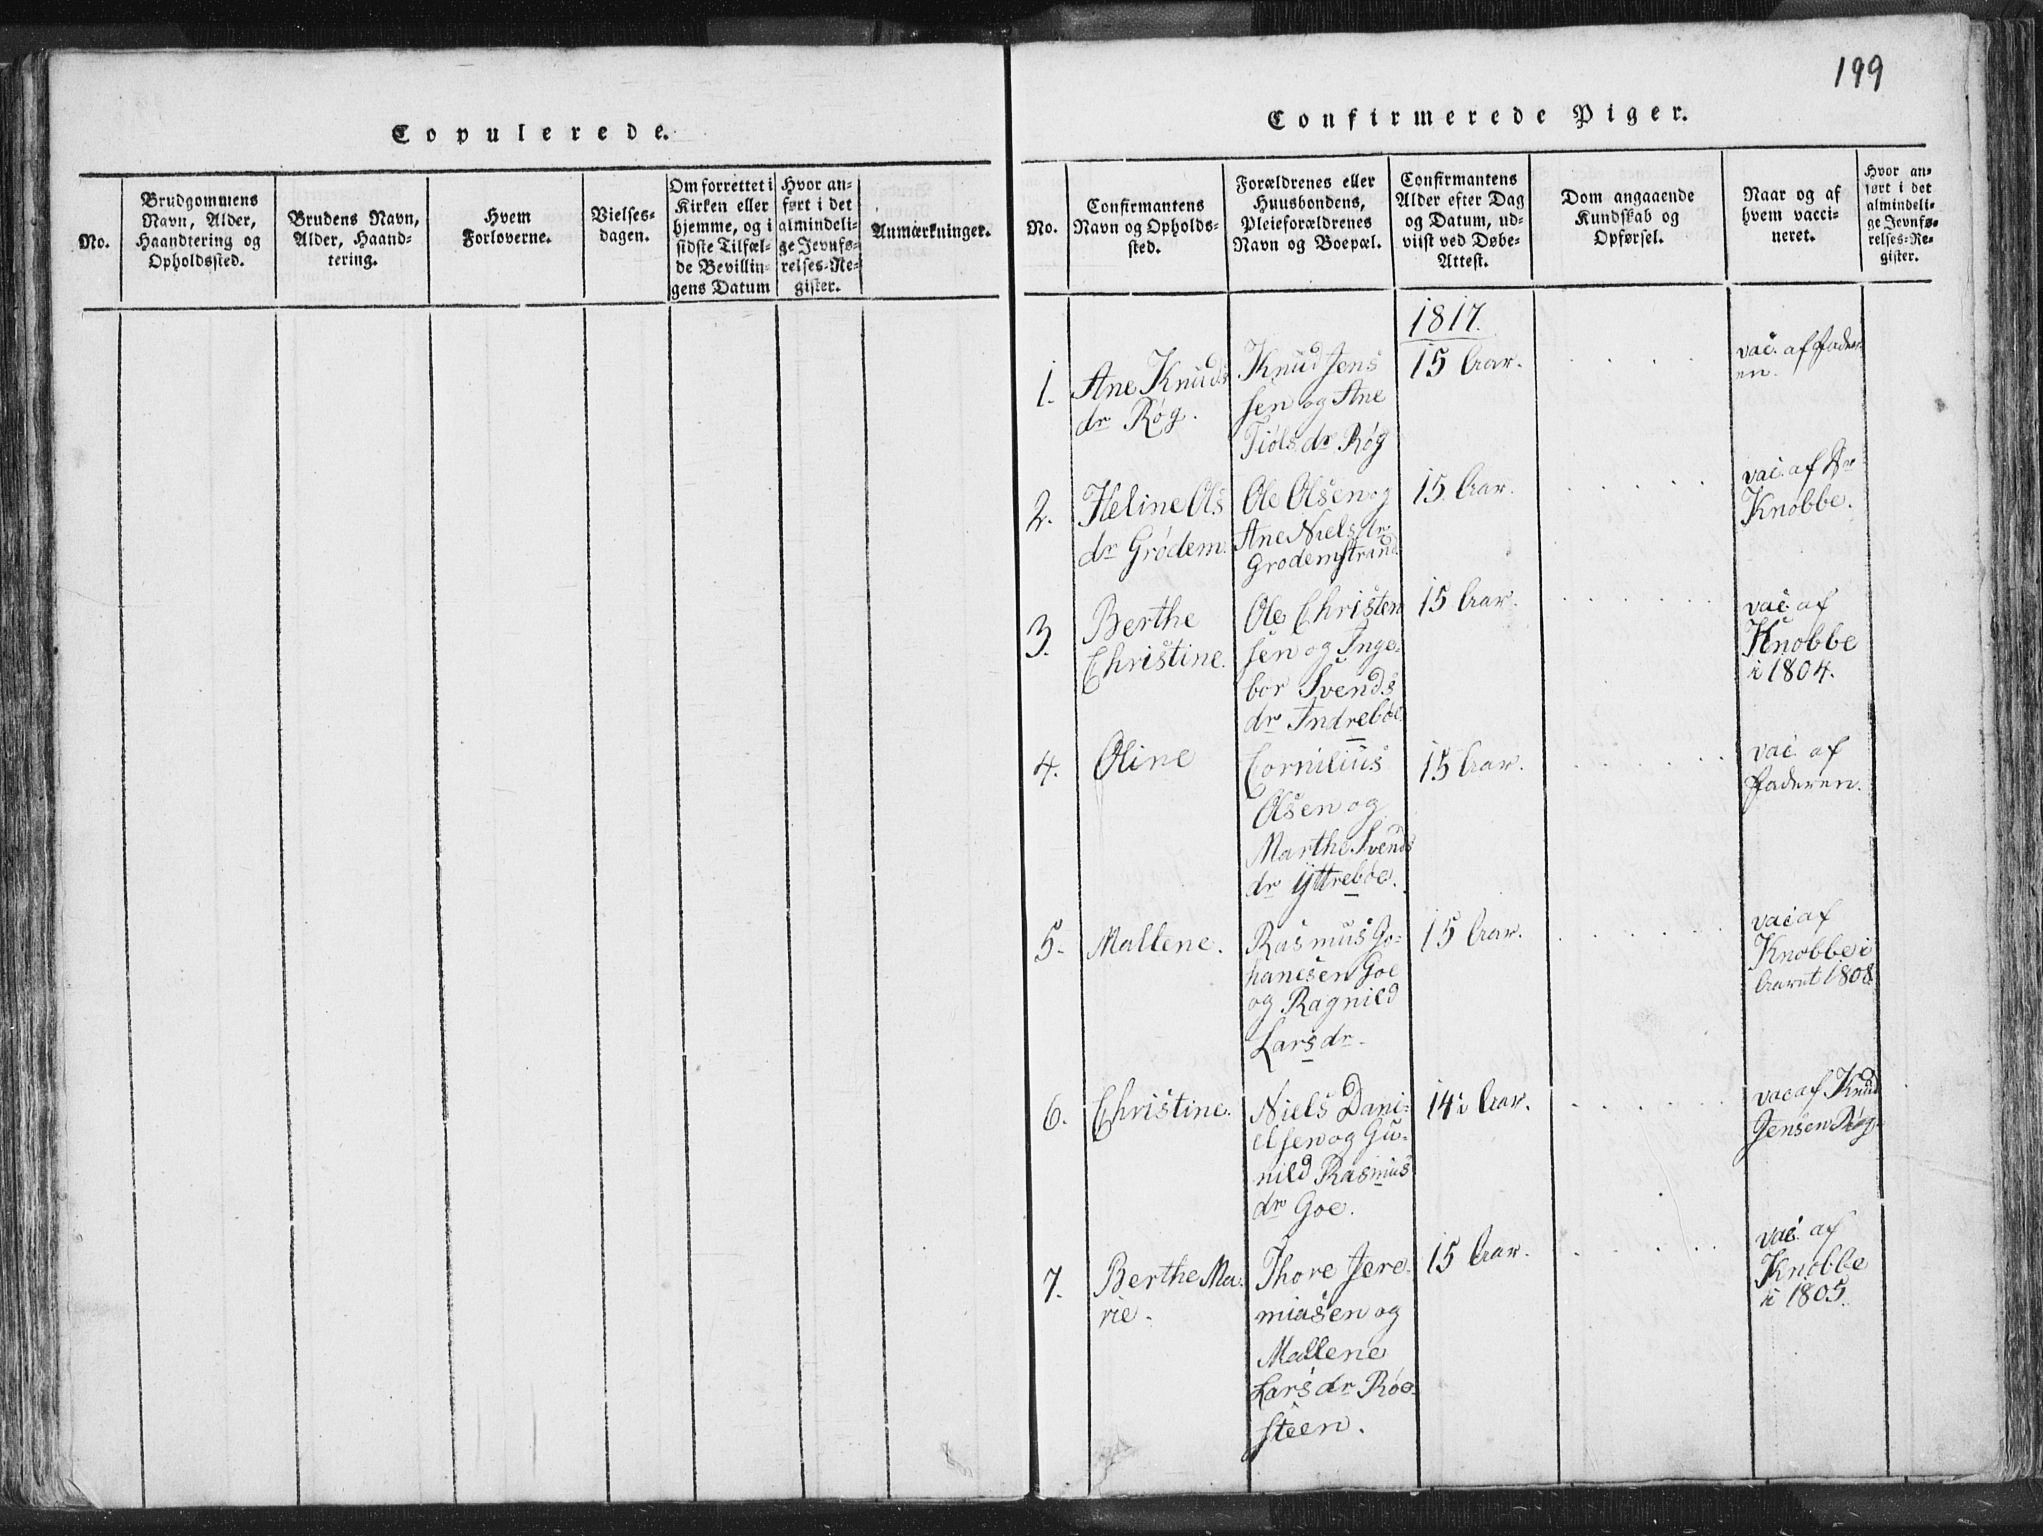 199
Copulerede.
No.
Brudgommens
Navn, Alder,
Haandtering og
Opholdssted.
Brudens Navn,
Alder, Haand-
tering.
Hvem
Forloverne.
Vielses-
dagen.
Om forrettet i
Kirken eller
hjemme, og i
sidste Tilfæl-
de Bevillin-
gens Datum
Hvor an-
ført i det
almindeli-
ge Jevnfø-
relses-Re-
gister.
Anmærkninger.
Confirmerede Piger.
No.
Confirmantens
Navn og Opholds-
sted.
Forældrenes eller
Huusbondens,
Pleieforældrenes
Navn og Boepæl.
Confirmantens
Alder efter Dag
og Datum, ud-
viist ved Døbe-
Attest.
Dom angaaende
Kundskab og
Opførsel.
Naar og af
hvem vacci-
neret.
Hvor an-
ført i det
almindeli-
ge Jevnfø-
relses-Re-
gister.
1817.
1.
Ane Knuds
dr Røg.
Knud Jens
sen og Ane
Tiøls dr Røg
15 Aar.
vac. af Fader-
en.
2.
Heline Ols
dr Grødem.
Ole Olsen og
Ane Niels dr
Grodemstrand
15 Aar.
vac. af Dr
Knobbe.
3.
Berthe
Christine.
Ole Christen
sen og Inge-
bor Svends
dr Indrebøe
15 Aar.
vac. af
Knobbe
i 1804.
4.
Oline
Cornilius
Olsen og
Marthe Svends
dr Yttrebøe.
15 Aar.
vac. af
Faderen.
5.
Mallene.
Rasmus Jo-
hanesen Goe
og Ragnild
Lars dr.
15 Aar.
vac af
Knobbe i
Aaret 1808
6.
Christine.
Niels Dani-
elsen og Gu-
nild Rasmus
dr Goe.
14½ Aar.
vac af Knud
Jensen Røg.
7.
Berthe Ma-
rie.
Thore Jere-
miasen og
Mallene
Lars dr Røe-
steen.
15 Aar.
vac. af
Knobbe
i 1805.